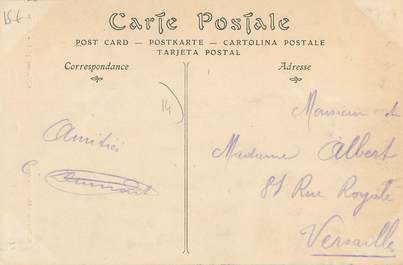 15-
Carte Postale
POST CARD — POSTKARTE — CARTOLINA POSTALE
TARJETA POSTAL
Correspondance
Adresse
14
Amitiés
C.
Monsieur &
Madame Albert
81 Rue Royale
Versailles